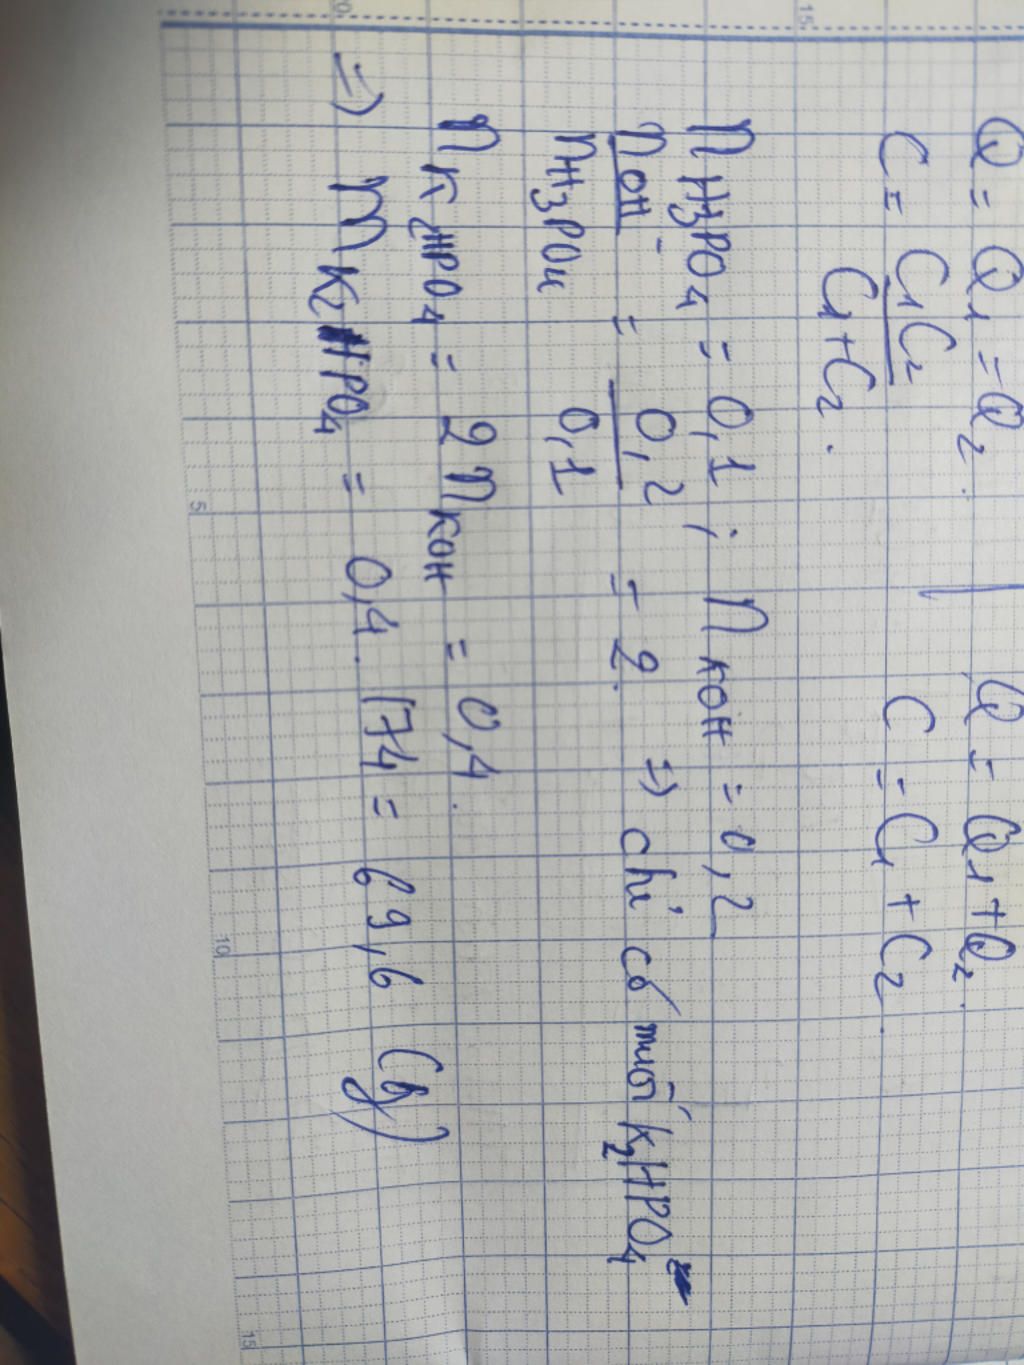 Q = Q1 = Q2. | Q = Q1 + Q2.
C = C1C2 / C1 + C2. C = C1 + C2.
n H3PO4 = 0,1 ; n KOH = 0,2
n OH- / n H3PO4 = 0,2 / 0,1 = 2. => chỉ có muối K2HPO4
n K2HPO4 = 2 n KOH = 0,4.
=> m K2HPO4 = 0,4. 174 = 69,6 (g)
15
5
10
15